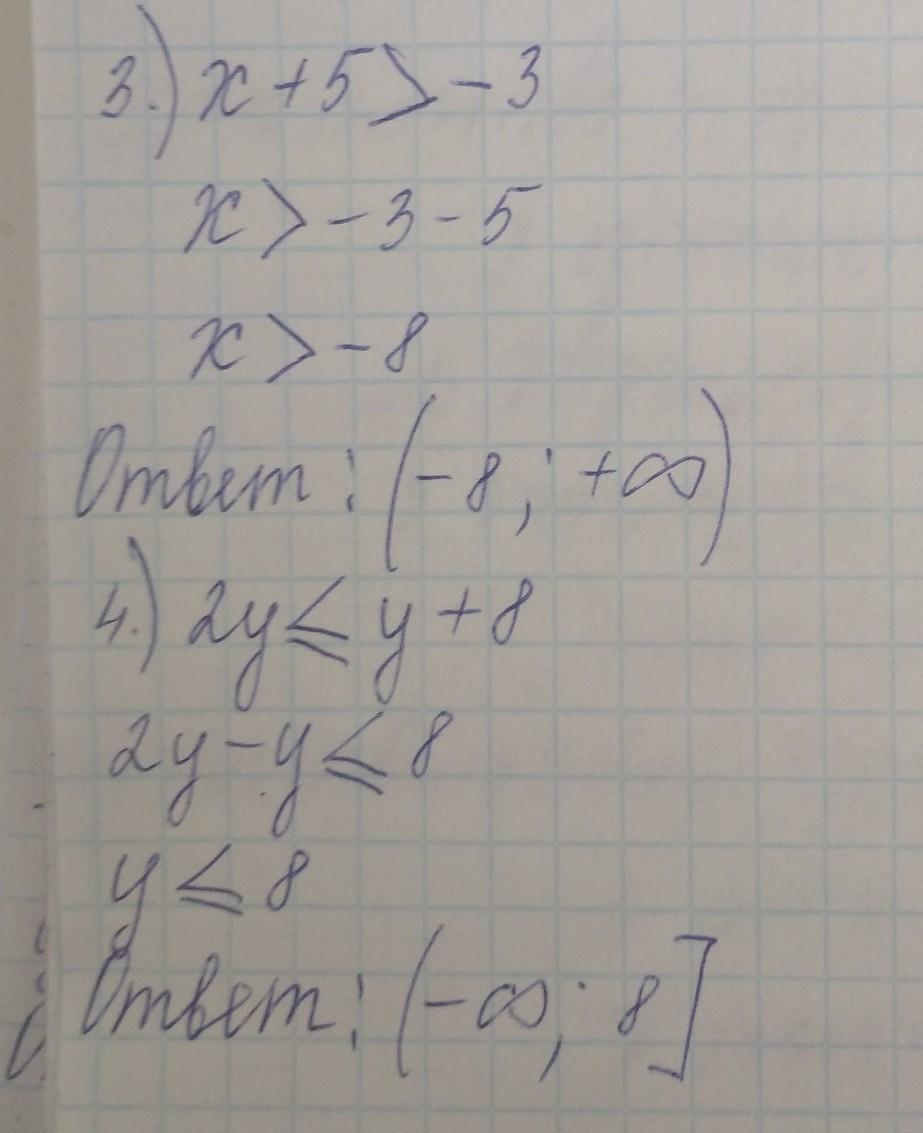 3.) x + 5 > - 3
x > - 3 - 5
x > - 8
Ответ: (- 8 ; + ∞)
4.) 2y ≤ y + 8
2y - y ≤ 8
y ≤ 8
Ответ: (- ∞; 8]